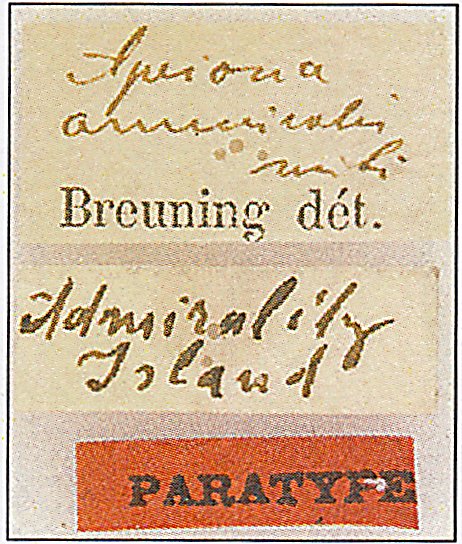 Apriona
mihi
Breuning dét.
Admirality
Island
PARATYPE